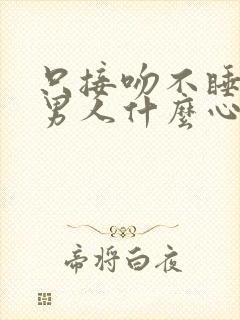 只接吻不睡
男人什麼心
帝将白夜